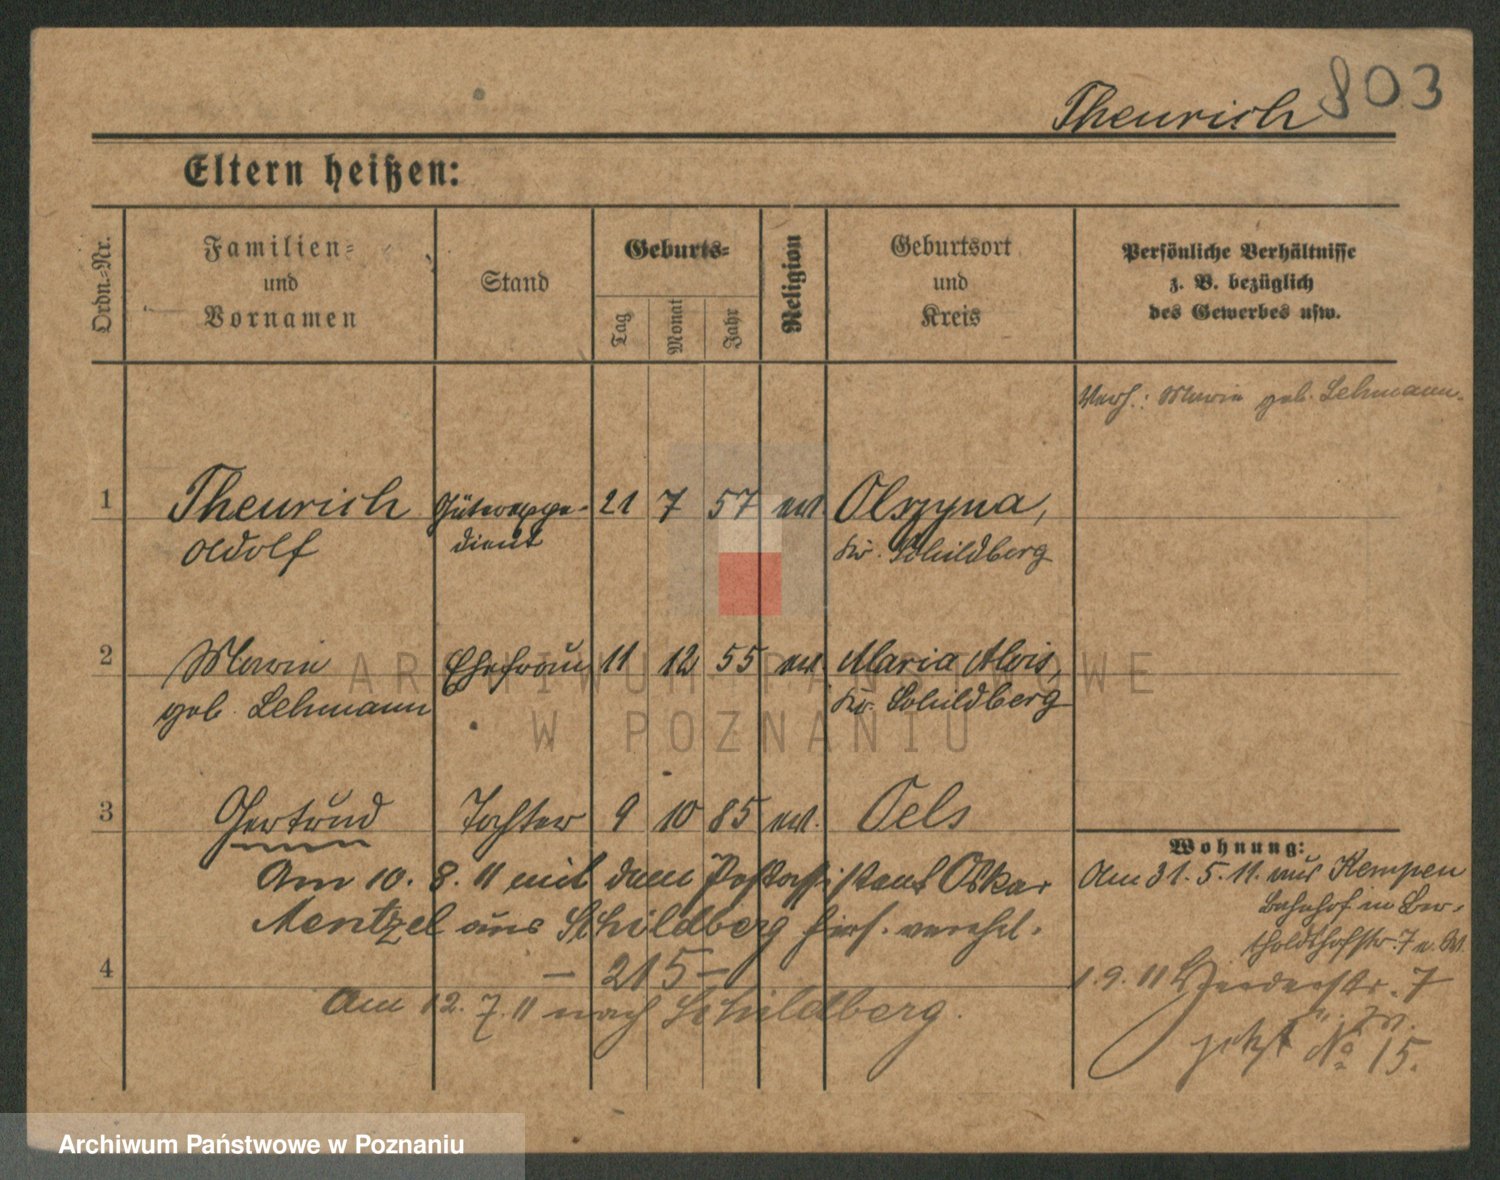 Theurich 803
Eltern heißen:
Ordn.-Nr.
Familien-
und
Vornamen
Stand
Geburts-
Tag
Monat
Jahr
Religion
Geburtsort
und
Kreis
Persönliche Verhältnisse
z. B. bezüglich
des Gewerbes usw.
Verh.: Marie geb. Lehmann.
1 Theurich Güterexpe- 21 7 57 ev Olszyna,
Adolf dient Kr. Schildberg
2 Marie Ehefrau 11 12 55 ev
geb. Lehmann Kr. Schildberg
3 Gertrud Tochter 9 10 85 ev. Oels
Am 10. 8. 11 mit dem Postassistent Oskar
Mentzel aus Schildberg hier verehel.
4 – 215 –
Am 12. 7. 11 nach Schildberg.
Wohnung:
Am 31. 5. 11. aus Kempen
Bahnhof in Ber-
tholdthofstr. 7
1. 9. 11 7
jetzt No 15.
ARCHIWUM PAŃSTWOWE
W POZNANIU
Archiwum Państwowe w Poznaniu